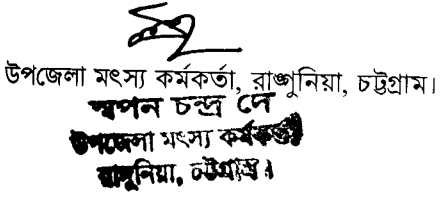 উপজেলা মৎস্য কর্মকর্তা, রাঙ্গুনিয়া, চট্টগ্রাম।
স্বপন চন্দ্র দে
উপজেলা মৎস্য কর্মকর্তা
রাঙ্গুনিয়া, চট্টগ্রাম।